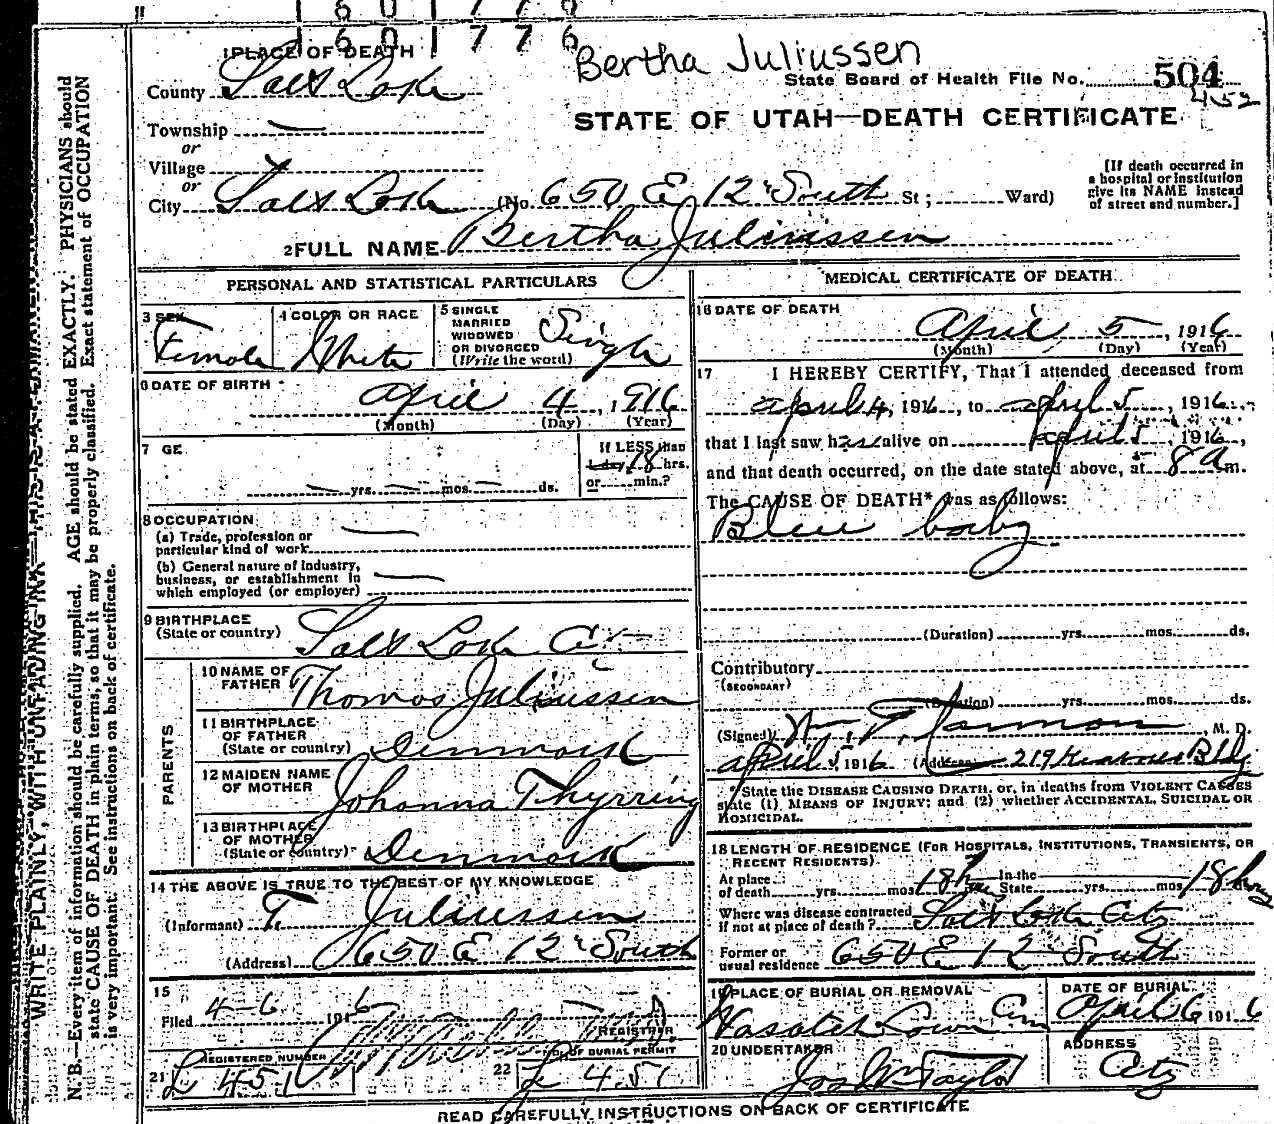 1 6 0 1 7 7 6
Bertha Juliussen
1 PLACE OF DEATH
State Board of Health File No. 504
452
County Salt Lake
STATE OF UTAH—DEATH CERTIFICATE
Township —
or
Village
or
City Salt Lake (No. 650 E 12" South St; Ward)
[If death occurred in
a hospital or institution
give its NAME instead
of street and number.]
2 FULL NAME Bertha Juliussen
PERSONAL AND STATISTICAL PARTICULARS
3 SEX
Female
4 COLOR OR RACE
White
5 SINGLE
MARRIED
WIDOWED
OR DIVORCED
(Write the word)
Single
6 DATE OF BIRTH
April 4, 1916
(Month) (Day) (Year)
7 GE
— yrs. — mos. — ds.
If LESS than
1 day, 18 hrs.
or min.?
8 OCCUPATION
(a) Trade, profession or
particular kind of work
(b) General nature of industry,
business, or establishment in
which employed (or employer)
9 BIRTHPLACE
(State or country) Salt Lake City
PARENTS
10 NAME OF
FATHER Thomas Juliussen
11 BIRTHPLACE
OF FATHER
(State or country) Denmark
12 MAIDEN NAME
OF MOTHER Johanna Thyrring
13 BIRTHPLACE
OF MOTHER
(State or country) Denmark
14 THE ABOVE IS TRUE TO THE BEST OF MY KNOWLEDGE
(Informant) T. Juliussen
(Address) 650 E 12" South
15
Filed 4-6 1916
REGISTRAR
REGISTERED NUMBER
21 L 451
NO. OF BURIAL PERMIT
22 L 451
MEDICAL CERTIFICATE OF DEATH
16 DATE OF DEATH
April 5, 1916
(Month) (Day) (Year)
17 I HEREBY CERTIFY, That I attended deceased from
april 4, 1916, to april 5, 1916
that I last saw her alive on april 5, 1916,
and that death occurred, on the date stated above, at 8 a m.
The CAUSE OF DEATH* was as follows:
Blue baby
(Duration) yrs. mos. ds.
Contributory
(SECONDARY)
(Duration) yrs. mos. ds.
(Signed) Wm. T. Cannon, M. D.
april 5, 1916 (Address) 219 Kearns Bldg
* State the DISEASE CAUSING DEATH, or, in deaths from VIOLENT CAUSES
state (1) MEANS OF INJURY; and (2) whether ACCIDENTAL, SUICIDAL OR
HOMICIDAL.
18 LENGTH OF RESIDENCE (FOR HOSPITALS, INSTITUTIONS, TRANSIENTS, OR
RECENT RESIDENTS)
At place
of death yrs. mos. 18 h In the State yrs. mos. 18 hrs
Where was disease contracted
If not at place of death? Salt Lake City
Former or
usual residence 650 E 12" South
19 PLACE OF BURIAL OR REMOVAL
Wasatch Lawn Cem
DATE OF BURIAL
April 6 1916
20 UNDERTAKER
Jos Wm Taylor
ADDRESS
City
READ CAREFULLY INSTRUCTIONS ON BACK OF CERTIFICATE
WRITE PLAINLY, WITH UNFADING INK—THIS IS A PERMANENT
N. B.—Every item of information should be carefully supplied. AGE should be stated EXACTLY. PHYSICIANS should
state CAUSE OF DEATH in plain terms, so that it may be properly classified. Exact statement of OCCUPATION
is very important. See instructions on back of certificate.